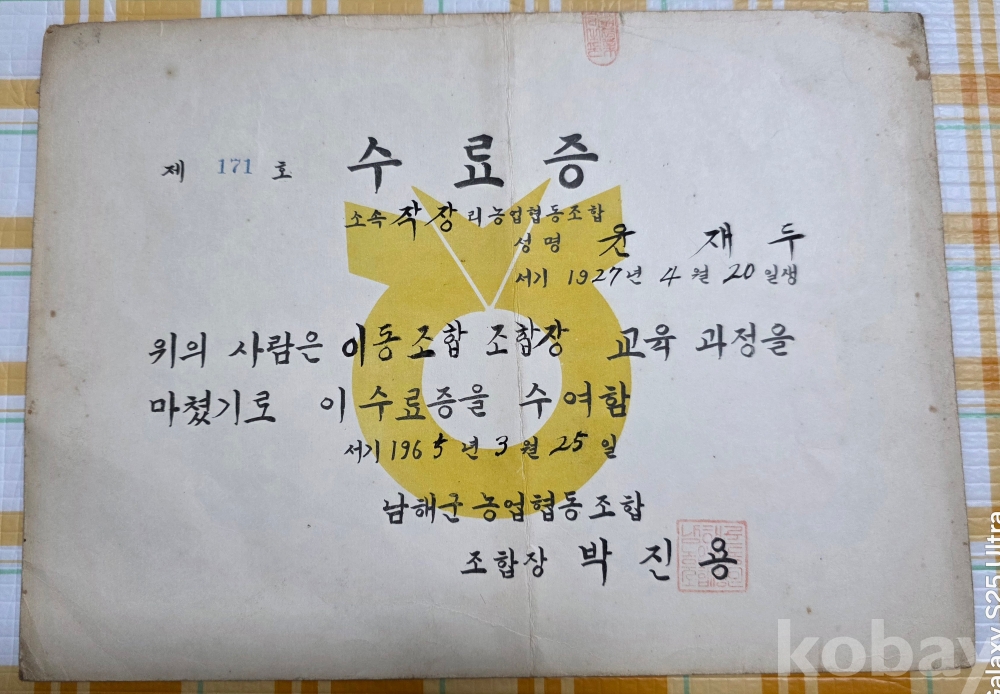 제 171 호 수료증
소속 작장 리농업협동조합
성명 윤재두
서기 1927년 4월 20일생
위의 사람은 이동조합 조합장 교육 과정을
마쳤기로 이 수료증을 수여함
서기 1965년 3월 25일
남해군 농업협동조합
조합장 박진용
kobay
alaxy S25 Ultra